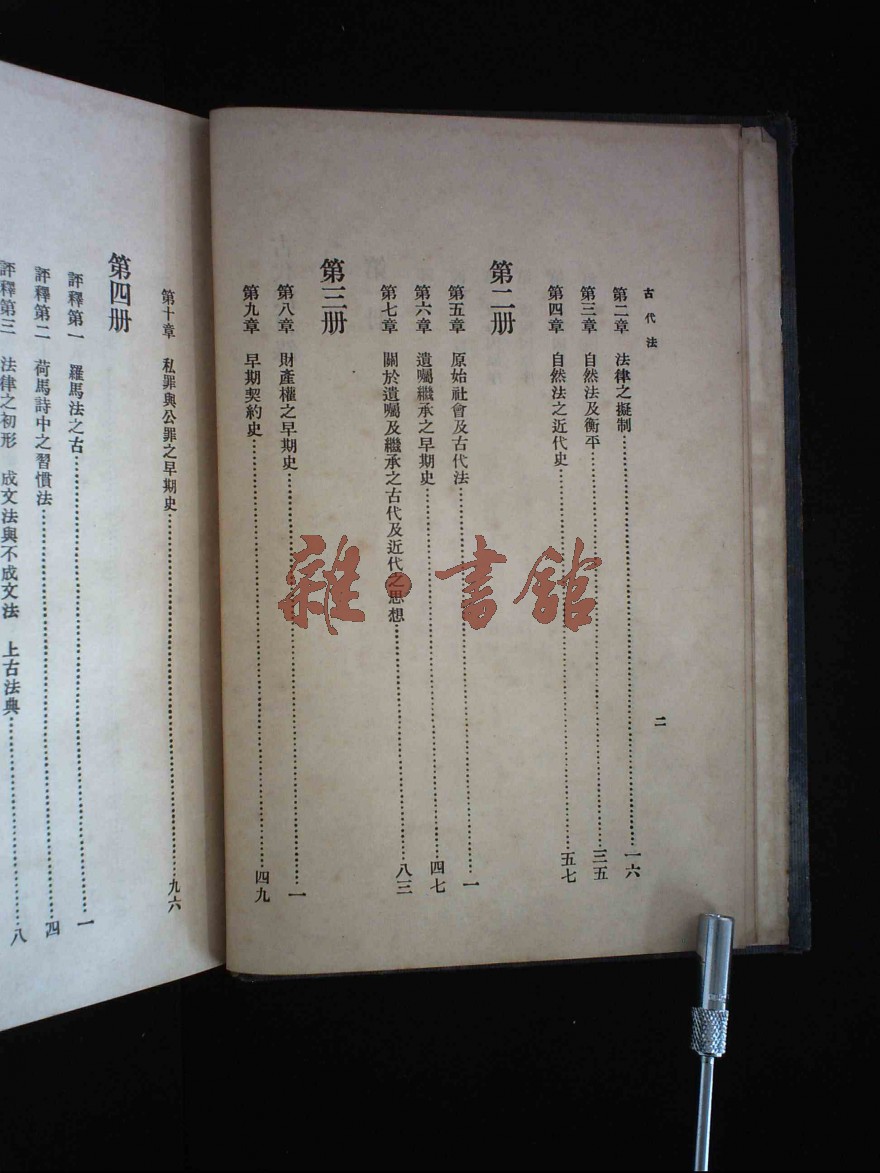 古代法
二
第二章 法律之擬制……一六
第三章 自然法及衡平……三五
第四章 自然法之近代史……五七
第二册
第五章 原始社會及古代法……一
第六章 遺囑繼承之早期史……四七
第七章 關於遺囑及繼承之古代及近代之思想……八三
第三册
第八章 財產權之早期史……一
第九章 早期契約史……四九
第十章 私罪與公罪之早期史……九六
第四册
評釋第一 羅馬法之古……一
評釋第二 荷馬詩中之習慣法……四
評釋第三 法律之初形 成文法與不成文法 上古法典……八
雜·書館